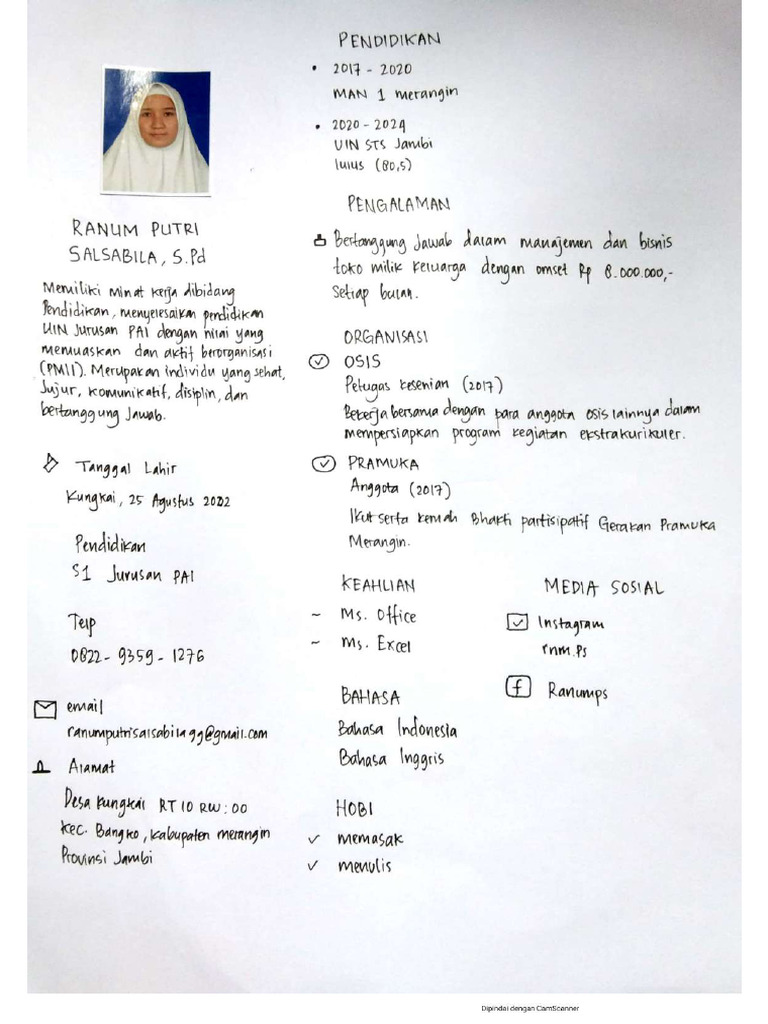 RANUM PUTRI
SALSABILA, S.Pd
Memiliki minat kerja dibidang
Pendidikan, menyelesaikan pendidikan
UIN Jurusan PAI dengan nilai yang
memuaskan dan aktif berorganisasi
(PMII). Merupakan individu yang sehat,
Jujur, komunikatif, disiplin, dan
bertanggung Jawab.
Tanggal Lahir
Kungkai, 25 Agustus 2002
Pendidikan
S1 Jurusan PAI
Telp
0822-9359-1276
email
ranumputrisalsabila99@gmail.com
Alamat
Desa Kungkai RT 10 RW:00
Kec. Bangko, Kabupaten merangin
Provinsi Jambi
PENDIDIKAN
• 2017 - 2020
MAN 1 merangin
• 2020 - 2024
UIN STS Jambi
lulus (80,5)
PENGALAMAN
Bertanggung Jawab dalam manajemen dan bisnis
toko milik keluarga dengan omset Rp 8.000.000,-
Setiap bulan.
ORGANISASI
OSIS
Petugas kesenian (2017)
Bekerja bersama dengan para anggota osis lainnya dalam
mempersiapkan program kegiatan ekstrakurikuler.
PRAMUKA
Anggota (2017)
Ikut serta kemah Bhakti partisipatif Gerakan Pramuka
Merangin.
KEAHLIAN
~ Ms. Office
~ Ms. Excel
BAHASA
Bahasa Indonesia
Bahasa Inggris
HOBI
✓ memasak
✓ menulis
MEDIA SOSIAL
Instagram
rnm.Ps
f Ranumps
Dipindai dengan CamScanner